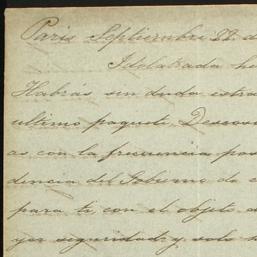 Paris Septiembre 22 d
Idolatrada h
Habrás sin duda estra
ultimo paquete. Deseos
as con la frecuencia pos
dencia del Gobierno de e
para ti con el objeto d
yor seguridad, y solo